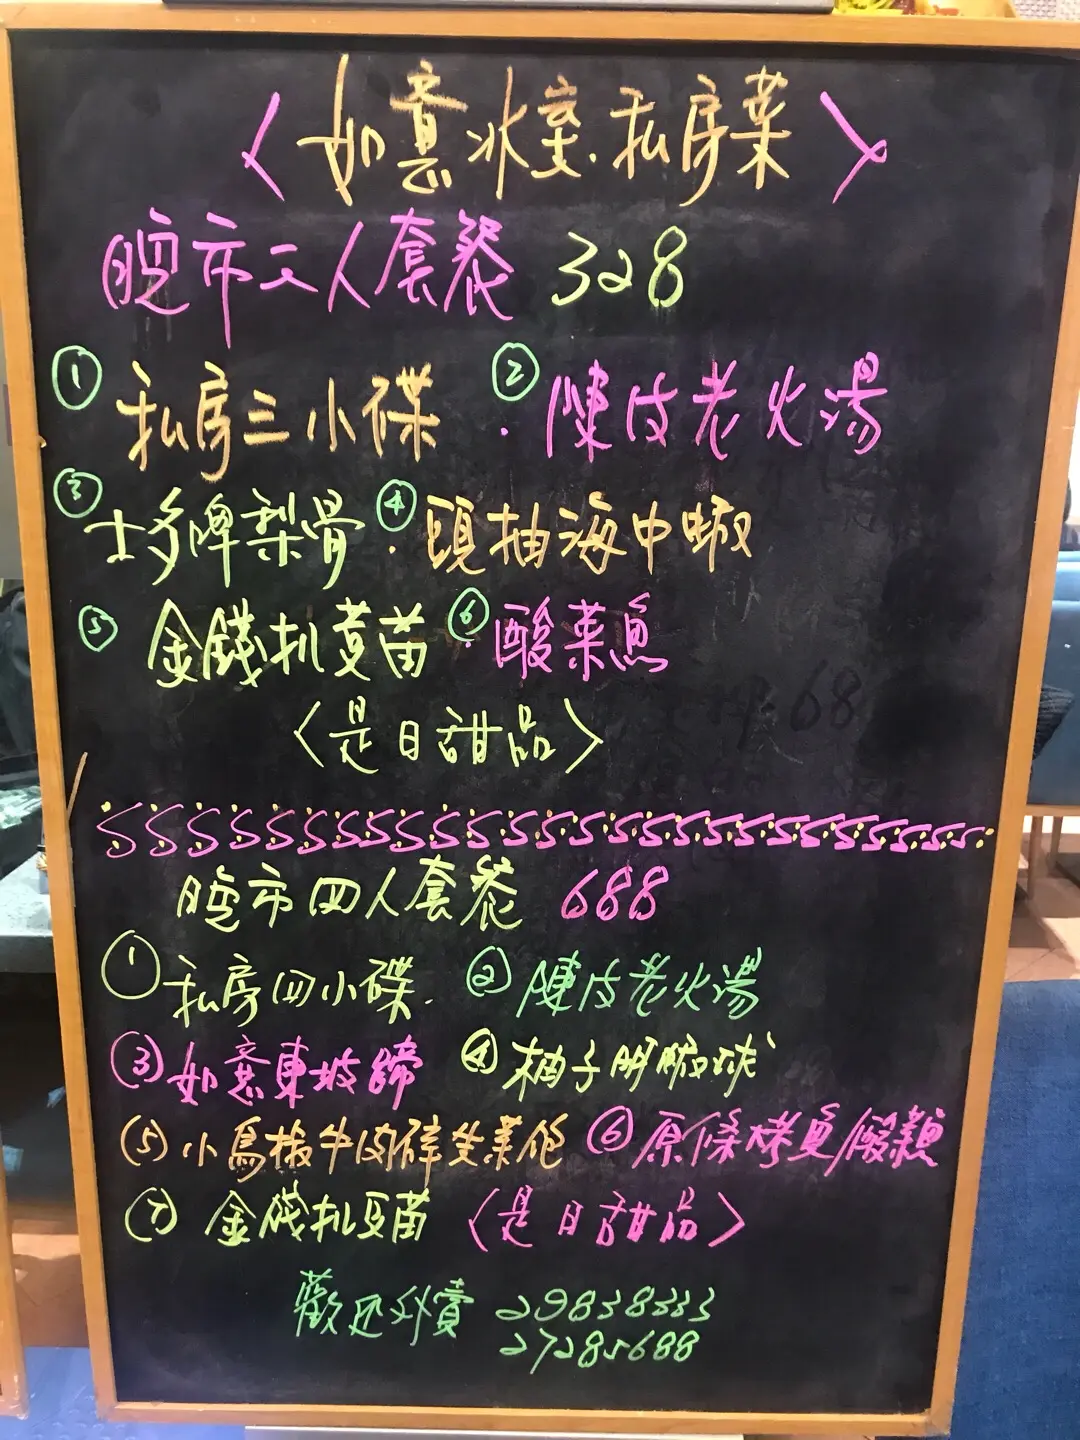 〈如意冰室.私房菜〉
晚市二人套餐 328
① 私房三小碟 ② 陳皮老火湯
③ 士多啤梨骨 ④ 頭抽海中蝦
⑤ 金錢扒豆苗 ⑥ 酸菜魚
〈是日甜品〉
晚市四人套餐 688
① 私房四小碟. ② 陳皮老火湯
③ 如意東坡蹄 ④ 柚子明蝦球
⑤ 小鳥椒牛肉碎生菜包 ⑥ 原條烤魚/酸菜魚
⑦ 金錢扒豆苗 〈是日甜品〉
歡迎外賣 29838333
27285688